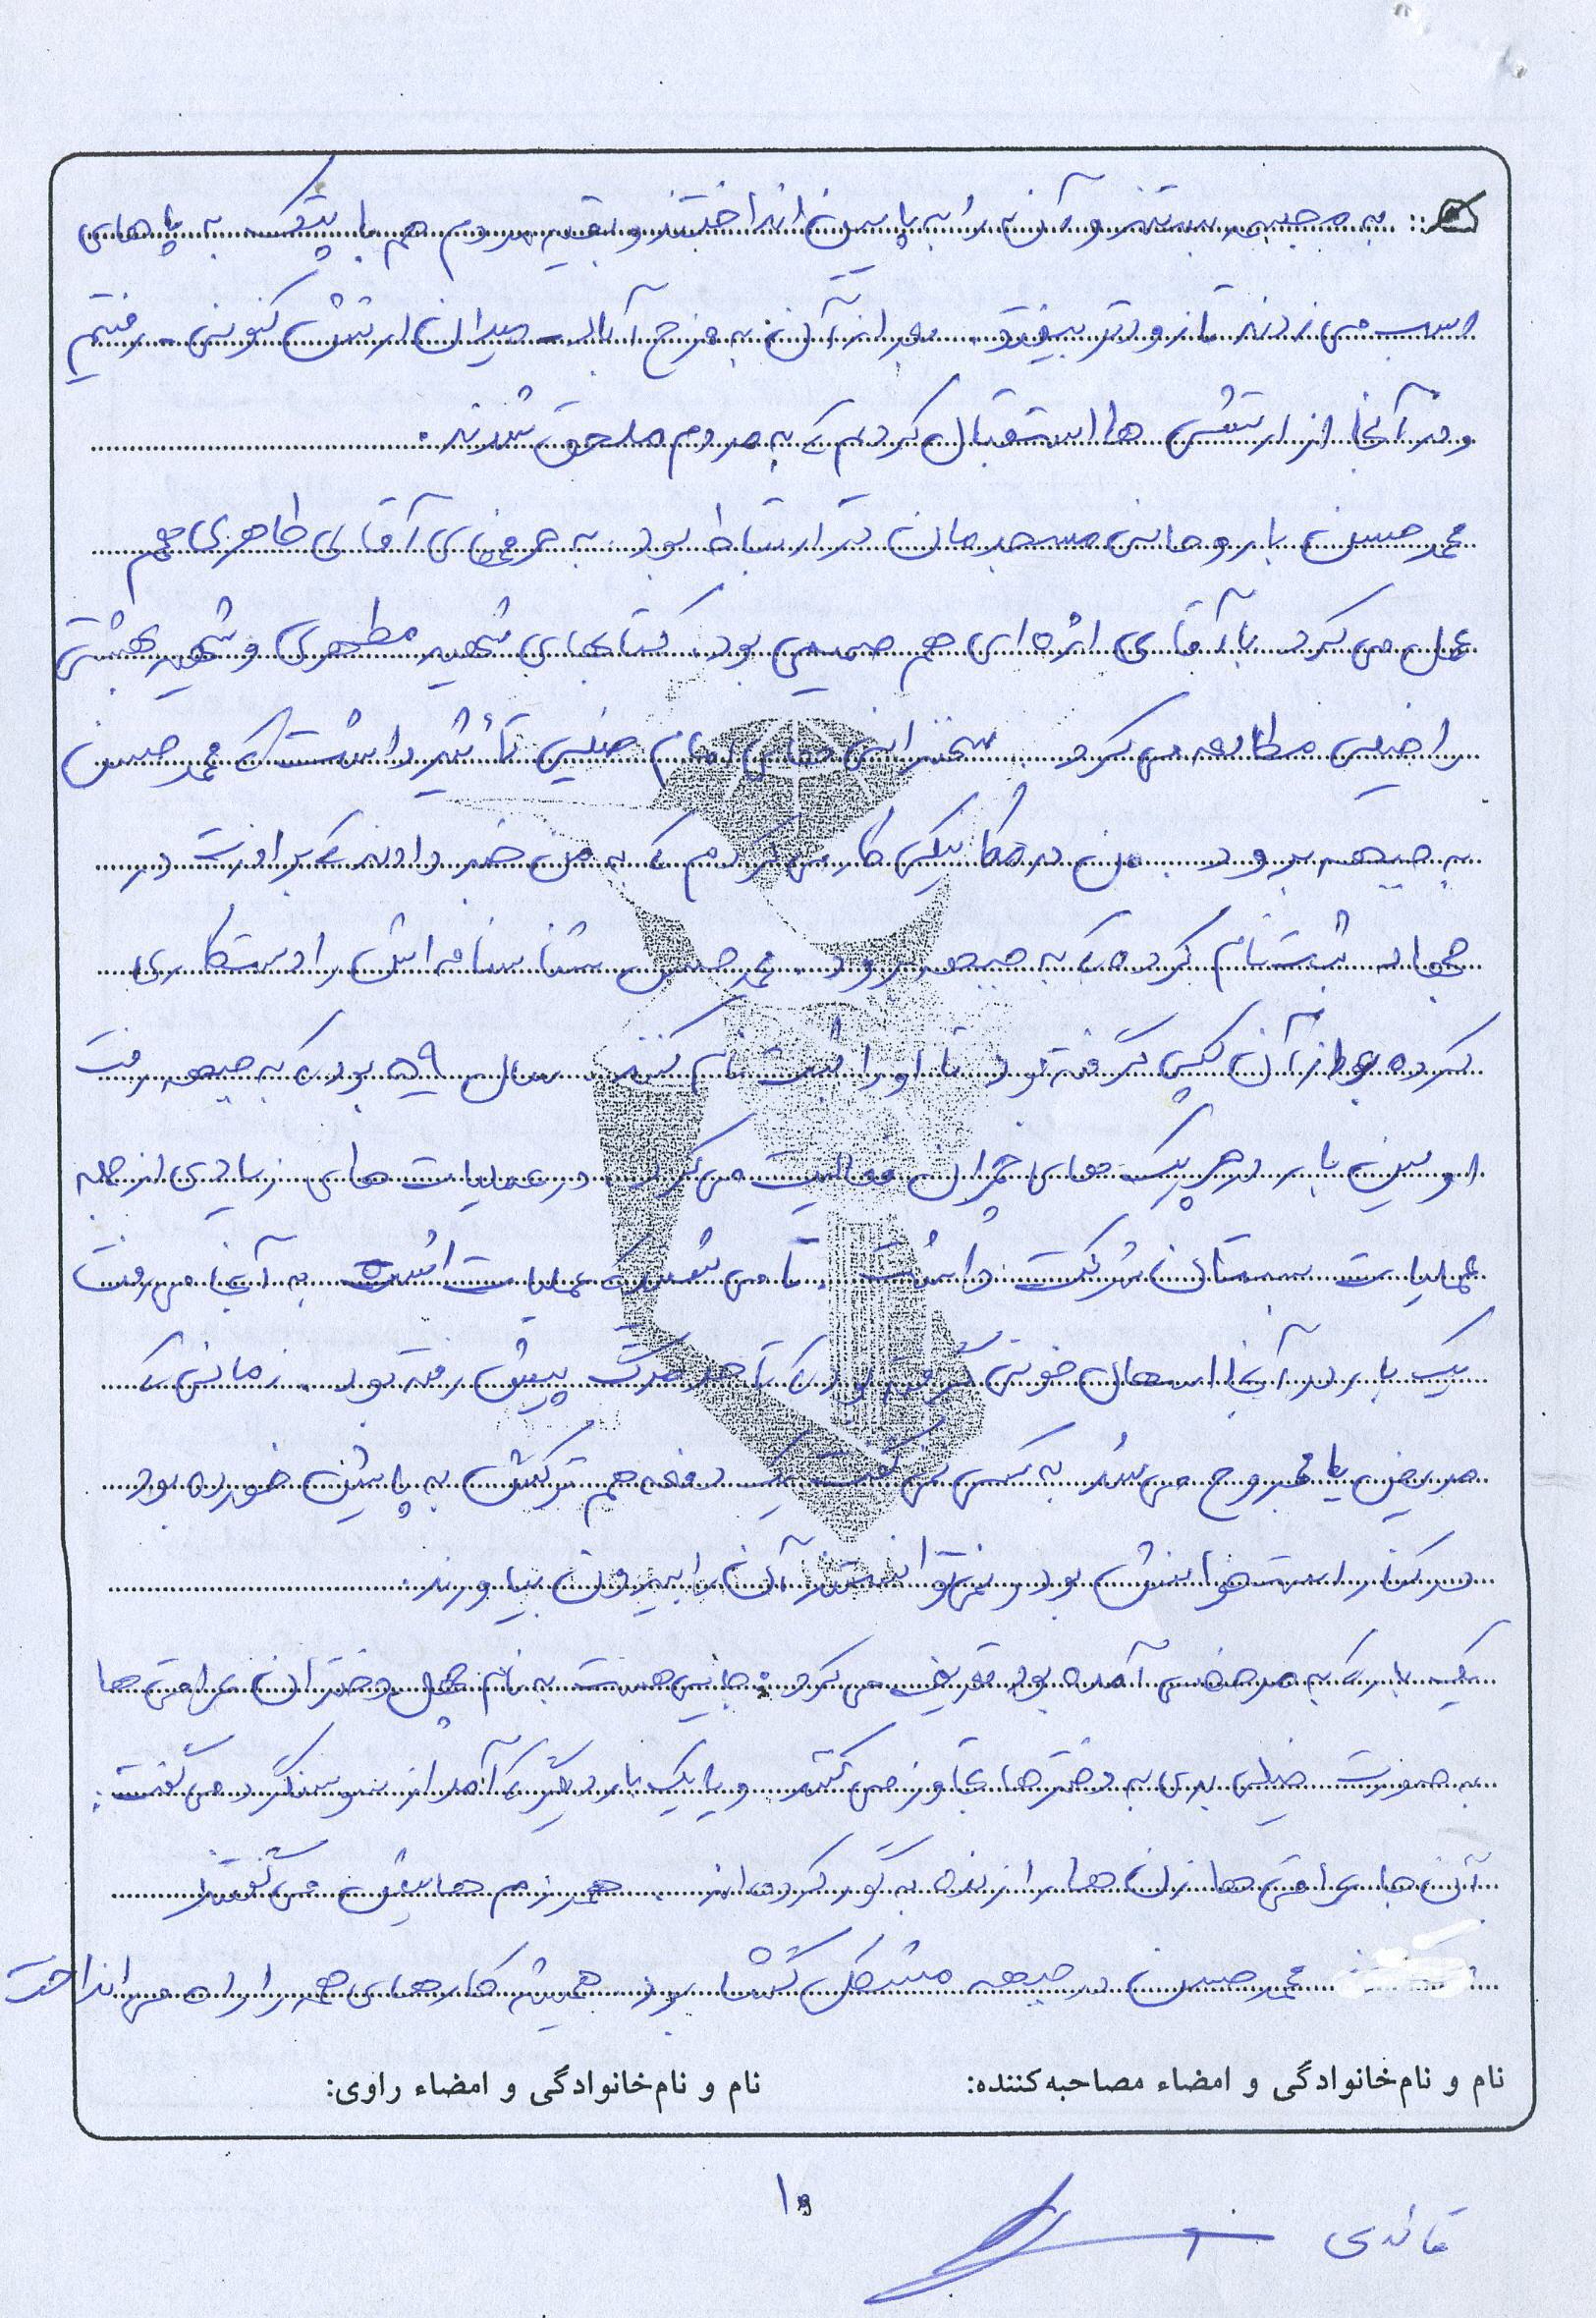 به مجسمه بستند و آن به را به پایین انداختند و بقیه مردم هم با پتک به پاهای
اسب می زدند تا زودتر بیفتد. بعد از آن به فرح آباد - میدان ارتش کنونی - رفتیم
و در آنجا از ارتشی ها استقبال کردیم که به مردم ملحق شدند.
محمدحسین با روحانی مسجدمان در ارتباط بود. به حرفهای آقای طاهری هم
عمل می کرد. با آقای اژه ای هم صمیمی بود. کتابهای شهید مطهری و شهید بهشتی
را خیلی مطالعه می کرد. سخنرانی های امام خیلی تأثیر داشت که محمدحسین
به جبهه برود. من در مکانیکی کار می کردم که به من خبر دادند که برادرت در
جهاد ثبت نام کرده که به جبهه برود. محمدحسین شناسنامه اش را دستکاری
کرده و از آن کپی گرفته بود تا او را ثبت نام کنند. سال ۵۹ بود که به جبهه رفت
اولین بار در چریک های چمران فعالیت می کرد. در عملیات های زیادی از جمله
عملیات بستان شرکت داشت. تا می شنید که عملیات است به آنجا می رفت
یک بار در آنجا اسهال خونی گرفته بود که تا حد مرگ پیش رفته بود. زمانی که
مریض یا مجروح می شد به کسی نمی گفت یک دفعه هم ترکش به پایش خورده بود
در کنار استخوانش بود و نمی توانستند آن را بیرون بیاورند.
یک بار که به مرخصی آمده بود تعریف می کرد: جایی هست به نام چهل دختران عراقی ها
به صورت خیلی بدی به دخترها تجاوز می کنند. و یا یک بار دیگر که آمد از سوسنگرد می گفت:
آن جا عراقی ها زن ها را زنده به گور کرده اند. همرزم هایش می گفتند
محمدحسین در جبهه مشکل گشا بود. همیشه کارهای همه را راه می انداخت
نام و نام‌خانوادگی و امضاء مصاحبه‌کننده: نام و نام‌خانوادگی و امضاء راوی:
قائدی